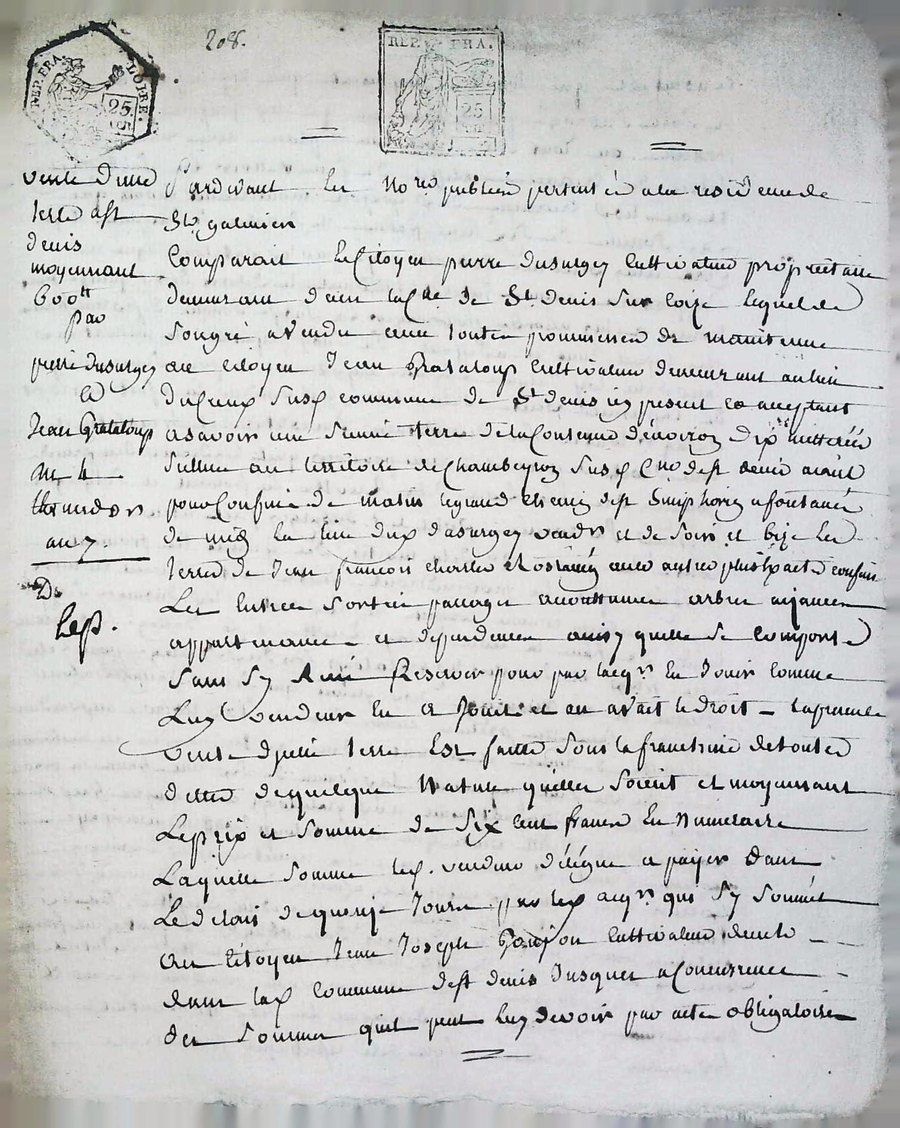 208.
REP. FRA.
LOIRE.
25
REP. FRA.
25
vente d'une
terre a St
denis
moyennant
600tt
par
pierre dusurgey
a
Jean Grataloup
du 4
thermidor
an 7.
D.
Exp.
Pardevant les no.res publics a la residence de
St. galmier
Comparait le Citoyen pierre dusurgey Cultivateur proprietaire
demeurant dans la C.ne de St denis sur coize lequel de
son gré a vendu avec toutes promesses de maintenue
au citoyen Jean Grataloup Cultivateur demeurant au lieu
du Creux susd. commune de St denis icy present et acceptant
a savoir une terre de la Contenue d'environ dix
Située au territoire de Chambeyron susd. C.ne de St denis ayant
pour Confins de matin le grand chemin de St Simphorien a fontanes
de midy la terre dud. dusurgey vend.r et de soir et bize les
terres de Jean françois charles avec autres plus Exacts confins
Les Entrées Sorties passages accoutumés arbres aisances
appartenances et dependences ainsy quelle se Comporte
Sans Sy Rien Reserver pour par lacq.r En Jouir Comme
Luy vendeur En a Jouit et en avait le droit - la presente
vente de terre Est faite sous la franchise de toutes
dettes de quelque Nature quelles soient et moyennant
Le prix et somme de Six Cent francs En Numeraire
Laquelle somme led. vendeur délégue a payer dans
Le delais de quinze Jours par led. acq.r qui s'y soumet
au Citoyen Jean Joseph Cultivateur
dans lad. Commune de St denis Jusques a Concurrence
des sommes quil peut luy devoir par acte obligatoire